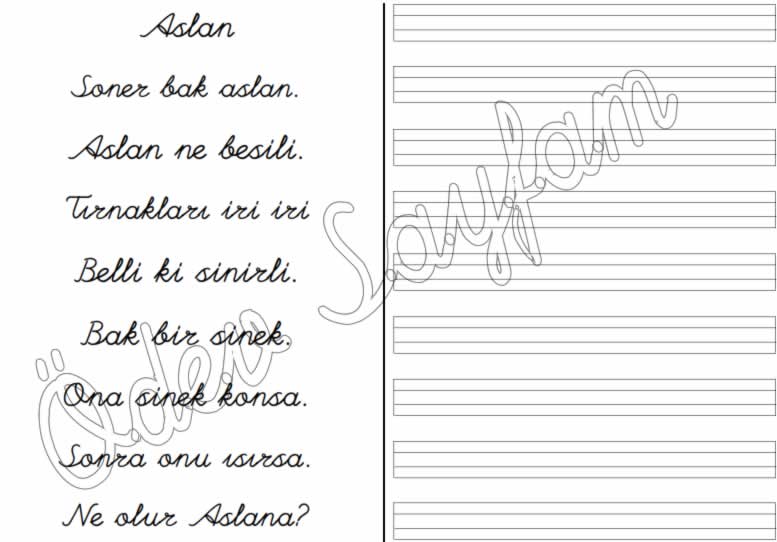 Aslan
Soner bak aslan.
Aslan ne besili.
Tırnakları iri iri
Belli ki sinirli.
Bak bir sinek.
Ona sinek konsa.
Sonra onu ısırsa.
Ne olur Aslana?
Ödev Sayfam